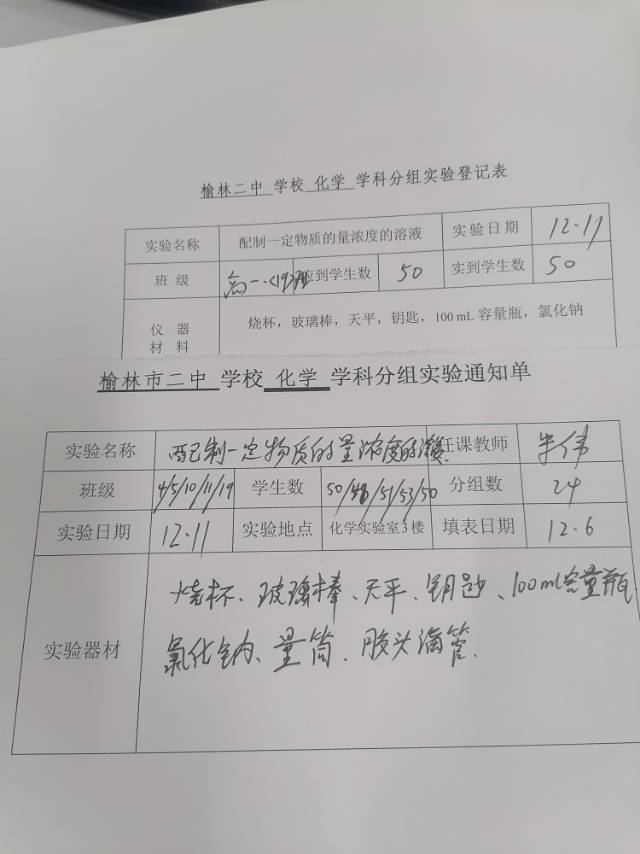 榆林二中 学校 化学 学科分组实验登记表
实验名称 配制一定物质的量浓度的溶液 实验日期 12.11
班 级 高一.<19>班 应到学生数 50 实到学生数 50
仪 器 烧杯，玻璃棒，天平，钥匙，100 mL 容量瓶，氯化钠
材 料
榆林市二中 学校 化学 学科分组实验通知单
实验名称 配制一定物质的量浓度的溶液 任课教师
班级 4/5/10/11/19 学生数 分组数 24
实验日期 12.11 实验地点 化学实验室3楼 填表日期 12.6
烧杯、玻璃棒、天平、钥匙、100ml容量瓶
实验器材 氯化钠、量筒、胶头滴管.